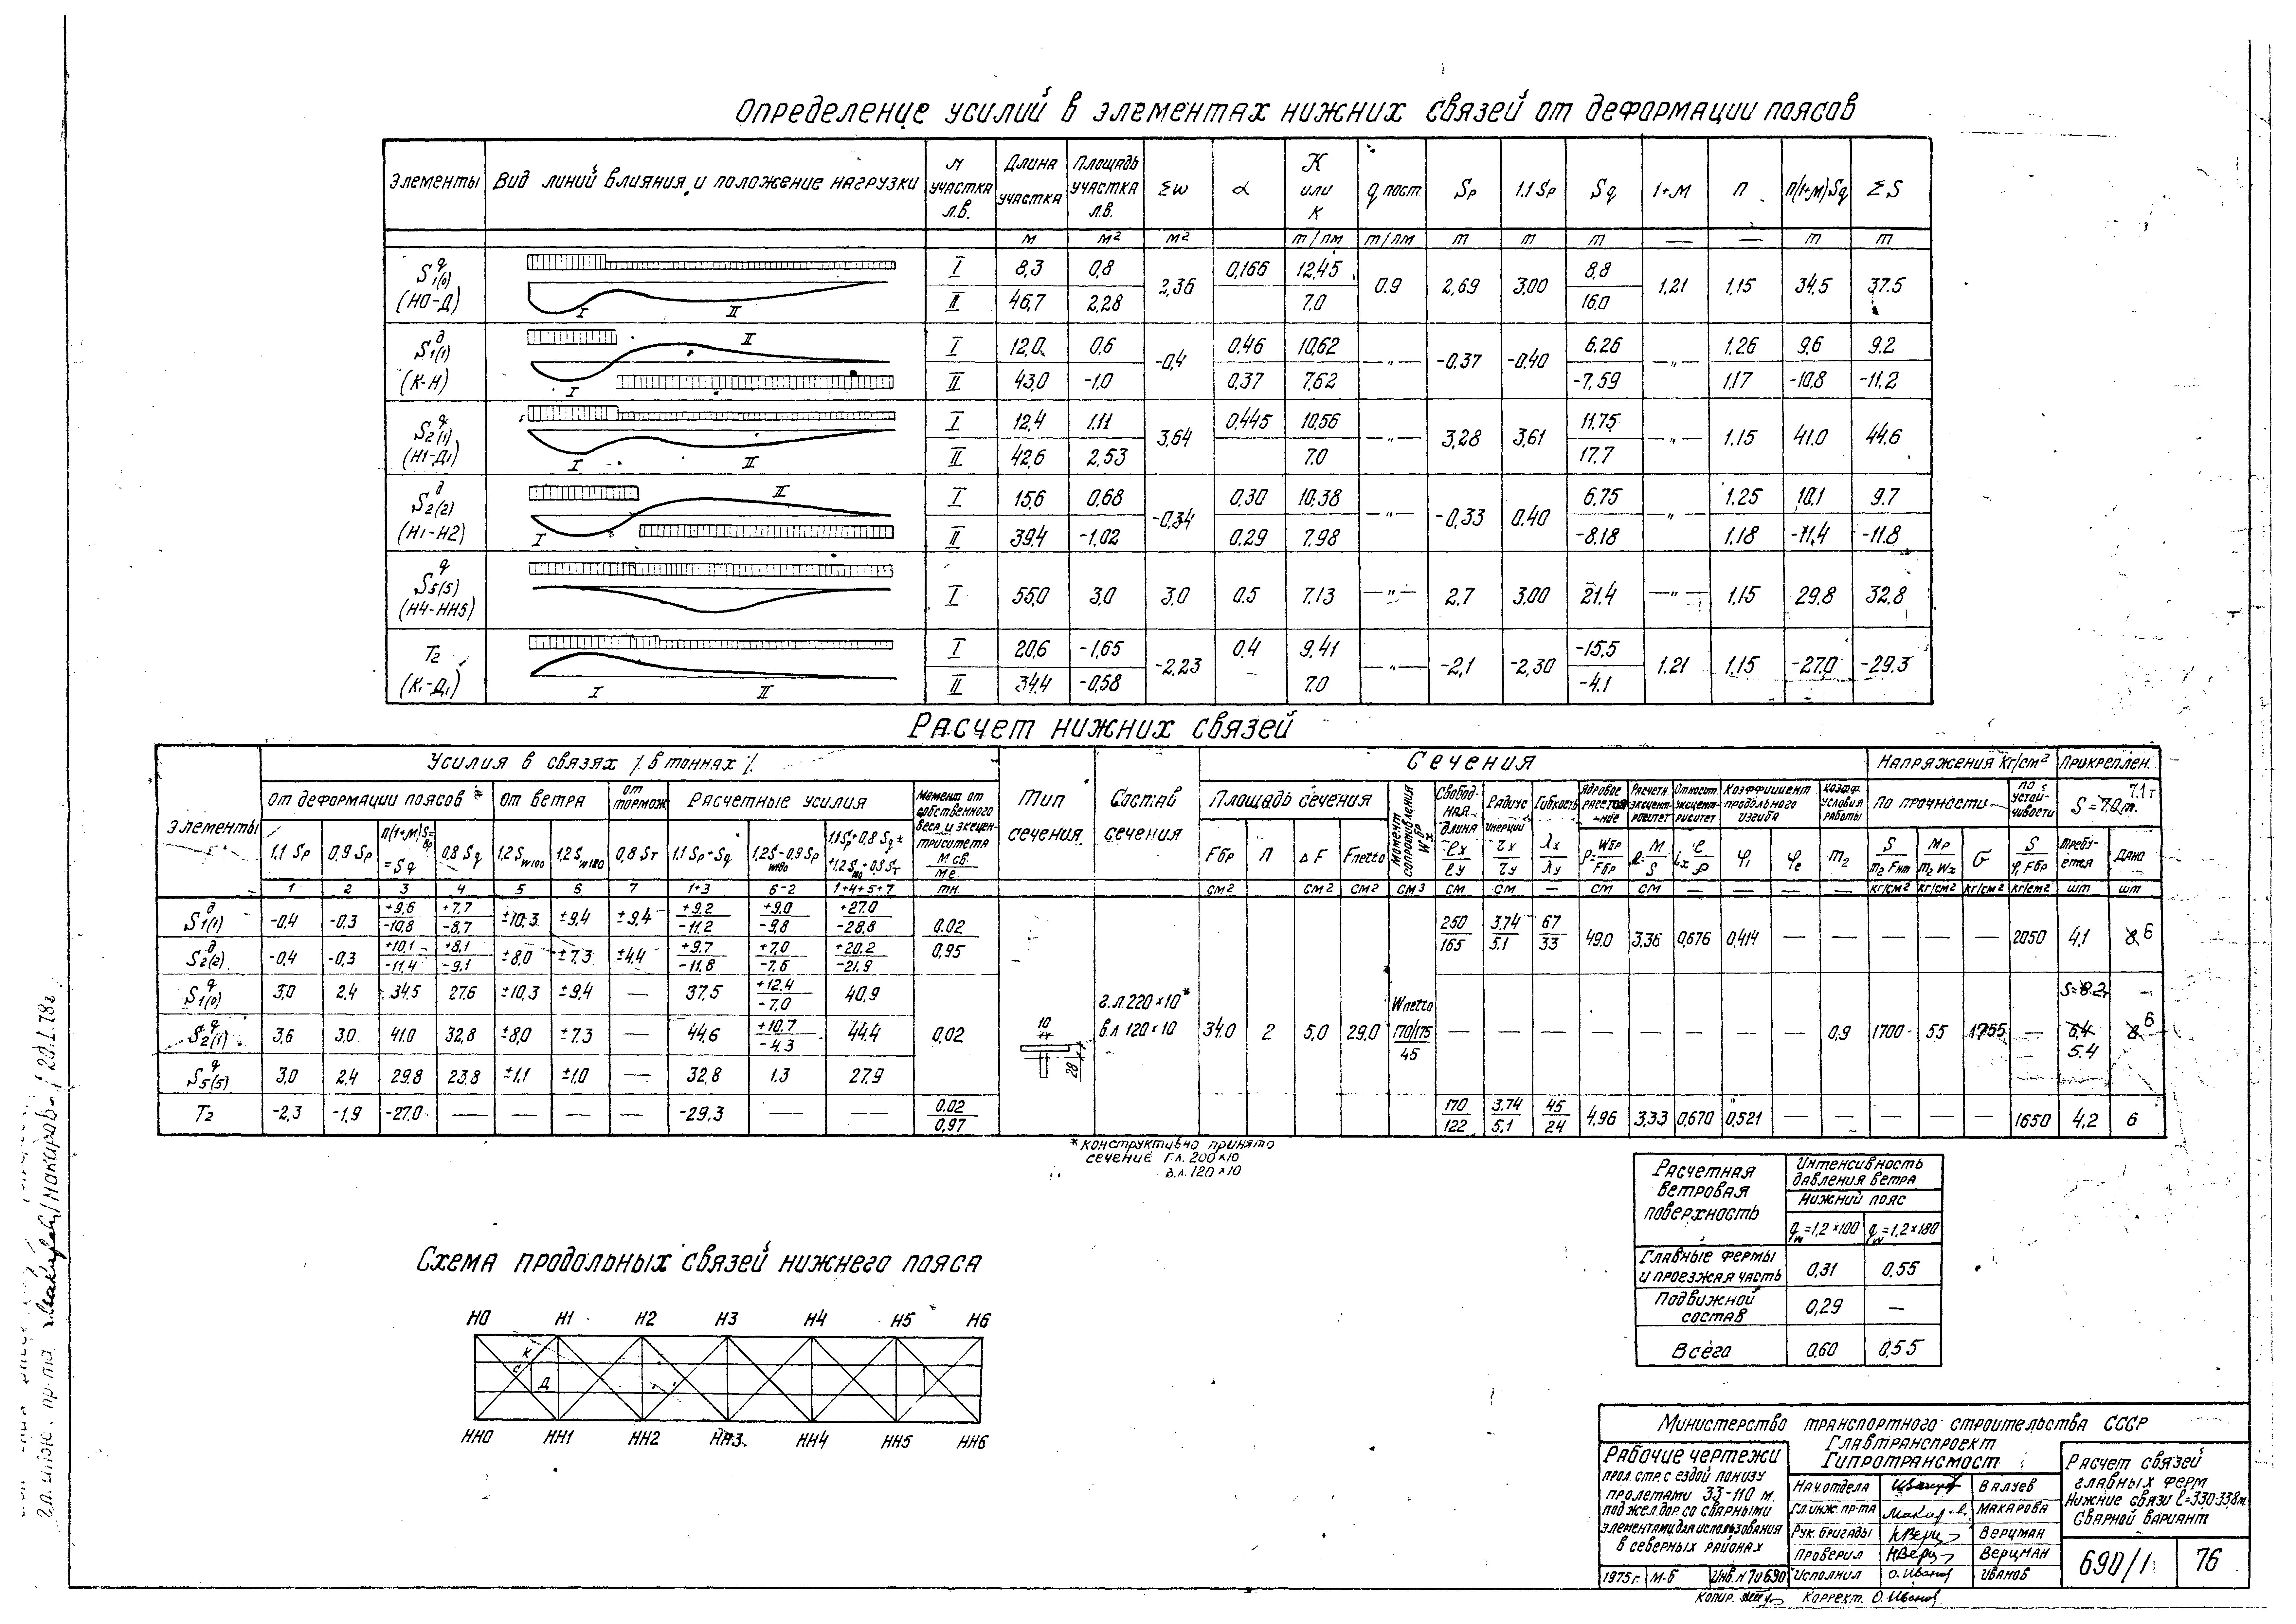 Определение усилий в элементах нижних связей от деформации поясов
Элементы | Вид линий влияния и положение нагрузки | N участка л.в. | Длина участка | Площадь участка л.в. | Σω | α | К или К | q пост. | Sр | 1.1 Sр | Sq | 1+М | П | П(1+М)Sq | ΣS
м | м² | м² | т/пм | т/пм | т | т | т | — | — | т | т
S1(0) q (Н0-Д) | I | 8,3 | 0,8 | 2,36 | 0,166 | 12.45 | 0.9 | 2,69 | 3.00 | 8,8 | 1.21 | 1.15 | 34.5 | 37.5
II | 46,7 | 2,28 | 7.0 | 16.0
S1(1) д (К-Н) | I | 12,0 | 0,6 | -0,4 | 0.46 | 10,62 | —„— | -0.37 | -0.40 | 6.26 | —„— | 1.26 | 9.6 | 9.2
II | 43,0 | -1,0 | 0,37 | 7,62 | -7,59 | 1.17 | -10,8 | -11.2
S2(1) q (Н1-Д1) | I | 12,4 | 1.11 | 3,64 | 0,445 | 10,56 | —„— | 3,28 | 3,61 | 11.75 | —„— | 1.15 | 41.0 | 44.6
II | 42,6 | 2,53 | 7.0 | 17.7
S2(2) д (Н1-Н2) | I | 15,6 | 0,68 | -0,34 | 0,30 | 10,38 | —„— | -0,33 | 0.40 | 6.75 | —„— | 1.25 | 10,1 | 9.7
II | 39.4 | -1,02 | 0.29 | 7.98 | -8.18 | 1.18 | -11,4 | -11.8
S5(5) q (Н4-НН5) | I | 55,0 | 3,0 | 3.0 | 0.5 | 7.13 | —„— | 2.7 | 3.00 | 21.4 | —„— | 1,15 | 29.8 | 32.8
Т2 (К1-Д1) | I | 20,6 | -1,65 | -2,23 | 0,4 | 9.41 | —„— | -2,1 | -2,30 | -15,5 | 1.21 | 1.15 | -27.0 | -29.3
II | 34.4 | -0,58 | 7.0 | -4.1
Расчет нижних связей
Элементы | Усилия в связях /в тоннах/ | Тип сечения | Состав сечения | Сечения | Напряжения кг/см² | Прикреплен.
От деформации поясов | От ветра | от тормож. | Расчетные усилия | Момент от собственного веса и эксцентриситета Мсв. Ме | Площадь сечения | Момент сопротивления | Свободная длина | Радиус инерции | Гибкость | Ядровое расстояние | Расчетн. эксцентриситет | Относит. эксцентриситет | Коэффициент продольного изгиба | Коэфф. условия работы | По прочности | по устойчивости | 7.1т S=7.0т.
1.1 Sр | 0,9 Sр | П(1+М)S= =Sq | 0,8 Sq | 1.2 Sw100 | 1,2 Sw180 | 0,8 Sт | 1.1 Sр+Sq | 1,2S-0,9 Sр | Fбр | П | ΔF | Fnetto | φ1 | φe | m2 | σ | требуется | Дано
1 | 2 | 3 | 4 | 5 | 6 | 7 | 1+3 | 6-2 | 1+4+5+7 | тн. | см² | см² | см² | см³ | см | см | — | см | см | — | — | — | — | кг/см² | кг/см² | кг/см² | кг/см² | шт | шт
S1(1) д | -0,4 | -0,3 | +9,6 -10,8 | +7,7 -8,7 | ±10.3 | ±9,4 | ±9,4 | +9,2 -11,2 | +9,0 -9,8 | +27.0 -28,8 | 0.02 | 250 165 | 3,74 5.1 | 67 33 | 4.90 | 3.36 | 0,676 | 0,414 | — | — | — | — | — | 2050 | 4.1 | 8 6
S2(2) д | -0,4 | -0,3 | +10,1 -11.4 | +8,1 -9.1 | ±8,0 | ±7,3 | ±4,4 | +9.7 -11,8 | +7,0 -7,6 | +20.2 -21.9 | 0,95
S1(0) q | 3,0 | 2.4 | 34.5 | 27,6 | ±10,3 | ±9,4 | — | 37,5 | +12.4 -7,0 | 40,9 | S=8.2т
S2(1) q | 3,6 | 3.0 | 41.0 | 32,8 | ±8,0 | ±7.3 | — | 44,6 | +10.7 -4.3 | 44.4 | 0,02 | 10 28 | г.л 220×10* в.л 120×10 | 34.0 | 2 | 5,0 | 29.0 | Wnetto 170/175 45 | — | 0,9 | 1700 | 55 | 1755 | — | 6,4 5.4 | 8 6
S5(5) q | 3,0 | 2.4 | 29.8 | 23,8 | ±1,1 | ±1,0 | — | 32,8 | 1.3 | 27.9
Т2 | -2,3 | -1,9 | -27.0 | — | — | — | — | -29.3 | — | — | 0.02 0,97 | 170 122 | 3.74 5.1 | 45 24 | 4,96 | 3,33 | 0,670 | 0,521 | — | — | — | — | — | 1650 | 4,2 | 6
*конструктивно принято
сечение г.л. 200×10
в.л. 120×10
Расчетная ветровая поверхность | Интенсивность давления ветра
Нижний пояс
qw=1,2×100 | qw=1,2×180
Главные фермы и проезжая часть | 0,31 | 0.55
Подвижной состав | 0,29 | —
Всего | 0.60 | 0,55
Схема продольных связей нижнего пояса
Н0 Н1 Н2 Н3 Н4 Н5 Н6
К
С
Д
НН0 НН1 НН2 НН3 НН4 НН5 НН6
Министерство транспортного строительства СССР
Главтранспроект
Гипротрансмост
Рабочие чертежи
прол. стр. с ездой понизу
пролетами 33-110 м.
под жел.дор. со сварными
элементами для использования
в северных районах
1975г. М-б Инв. N 70690
Нач.отдела Валуев
Гл.инж. пр-та Макарова
Рук. бригады Верцман
Проверил Верцман
Исполнил О.Иванов Иванов
Расчет связей
главных ферм
Нижние связи ℓ=33.0-33.8м.
Сварной вариант
690/1 76
Копир. Коррект. О.Иванов
Гл. инж. пр-та /Макарова/ 20.I.78г.